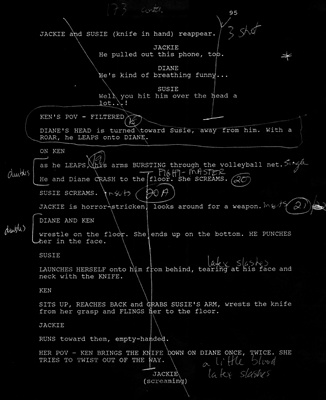 133 cont.
95
JACKIE and SUSIE (knife in hand) reappear.
3 shot
JACKIE
He pulled out this phone, too.
DIANE
He's kind of breathing funny...
SUSIE
Well you hit him over the head a
lot...!
KEN'S POV - FILTERED
DIANE'S HEAD is turned toward Susie, away from him. With a
ROAR, he LEAPS onto DIANE.
ON KEN
19
as he LEAPS, his arms BURSTING through the volleyball net. Single
doubles
FIGHT - MASTER
He and Diane CRASH to the floor. She SCREAMS. 20
SUSIE SCREAMS. inserts 20A
JACKIE is horror-stricken, looks around for a weapon. inserts 21
DIANE AND KEN
doubles
wrestle on the floor. She ends up on the bottom. HE PUNCHES
her in the face.
SUSIE
later slashes
LAUNCHES HERSELF onto him from behind, tearing at his face and
neck with the KNIFE.
KEN
SITS UP, REACHES BACK and GRABS SUSIE'S ARM, wrests the knife
from her grasp and FLINGS her to the floor.
JACKIE
RUNS toward them, empty-handed.
HER POV - KEN BRINGS THE KNIFE DOWN ON DIANE ONCE, TWICE. SHE
TRIES TO TWIST OUT OF THE WAY.
a little blood
later slashes
JACKIE
(screaming)